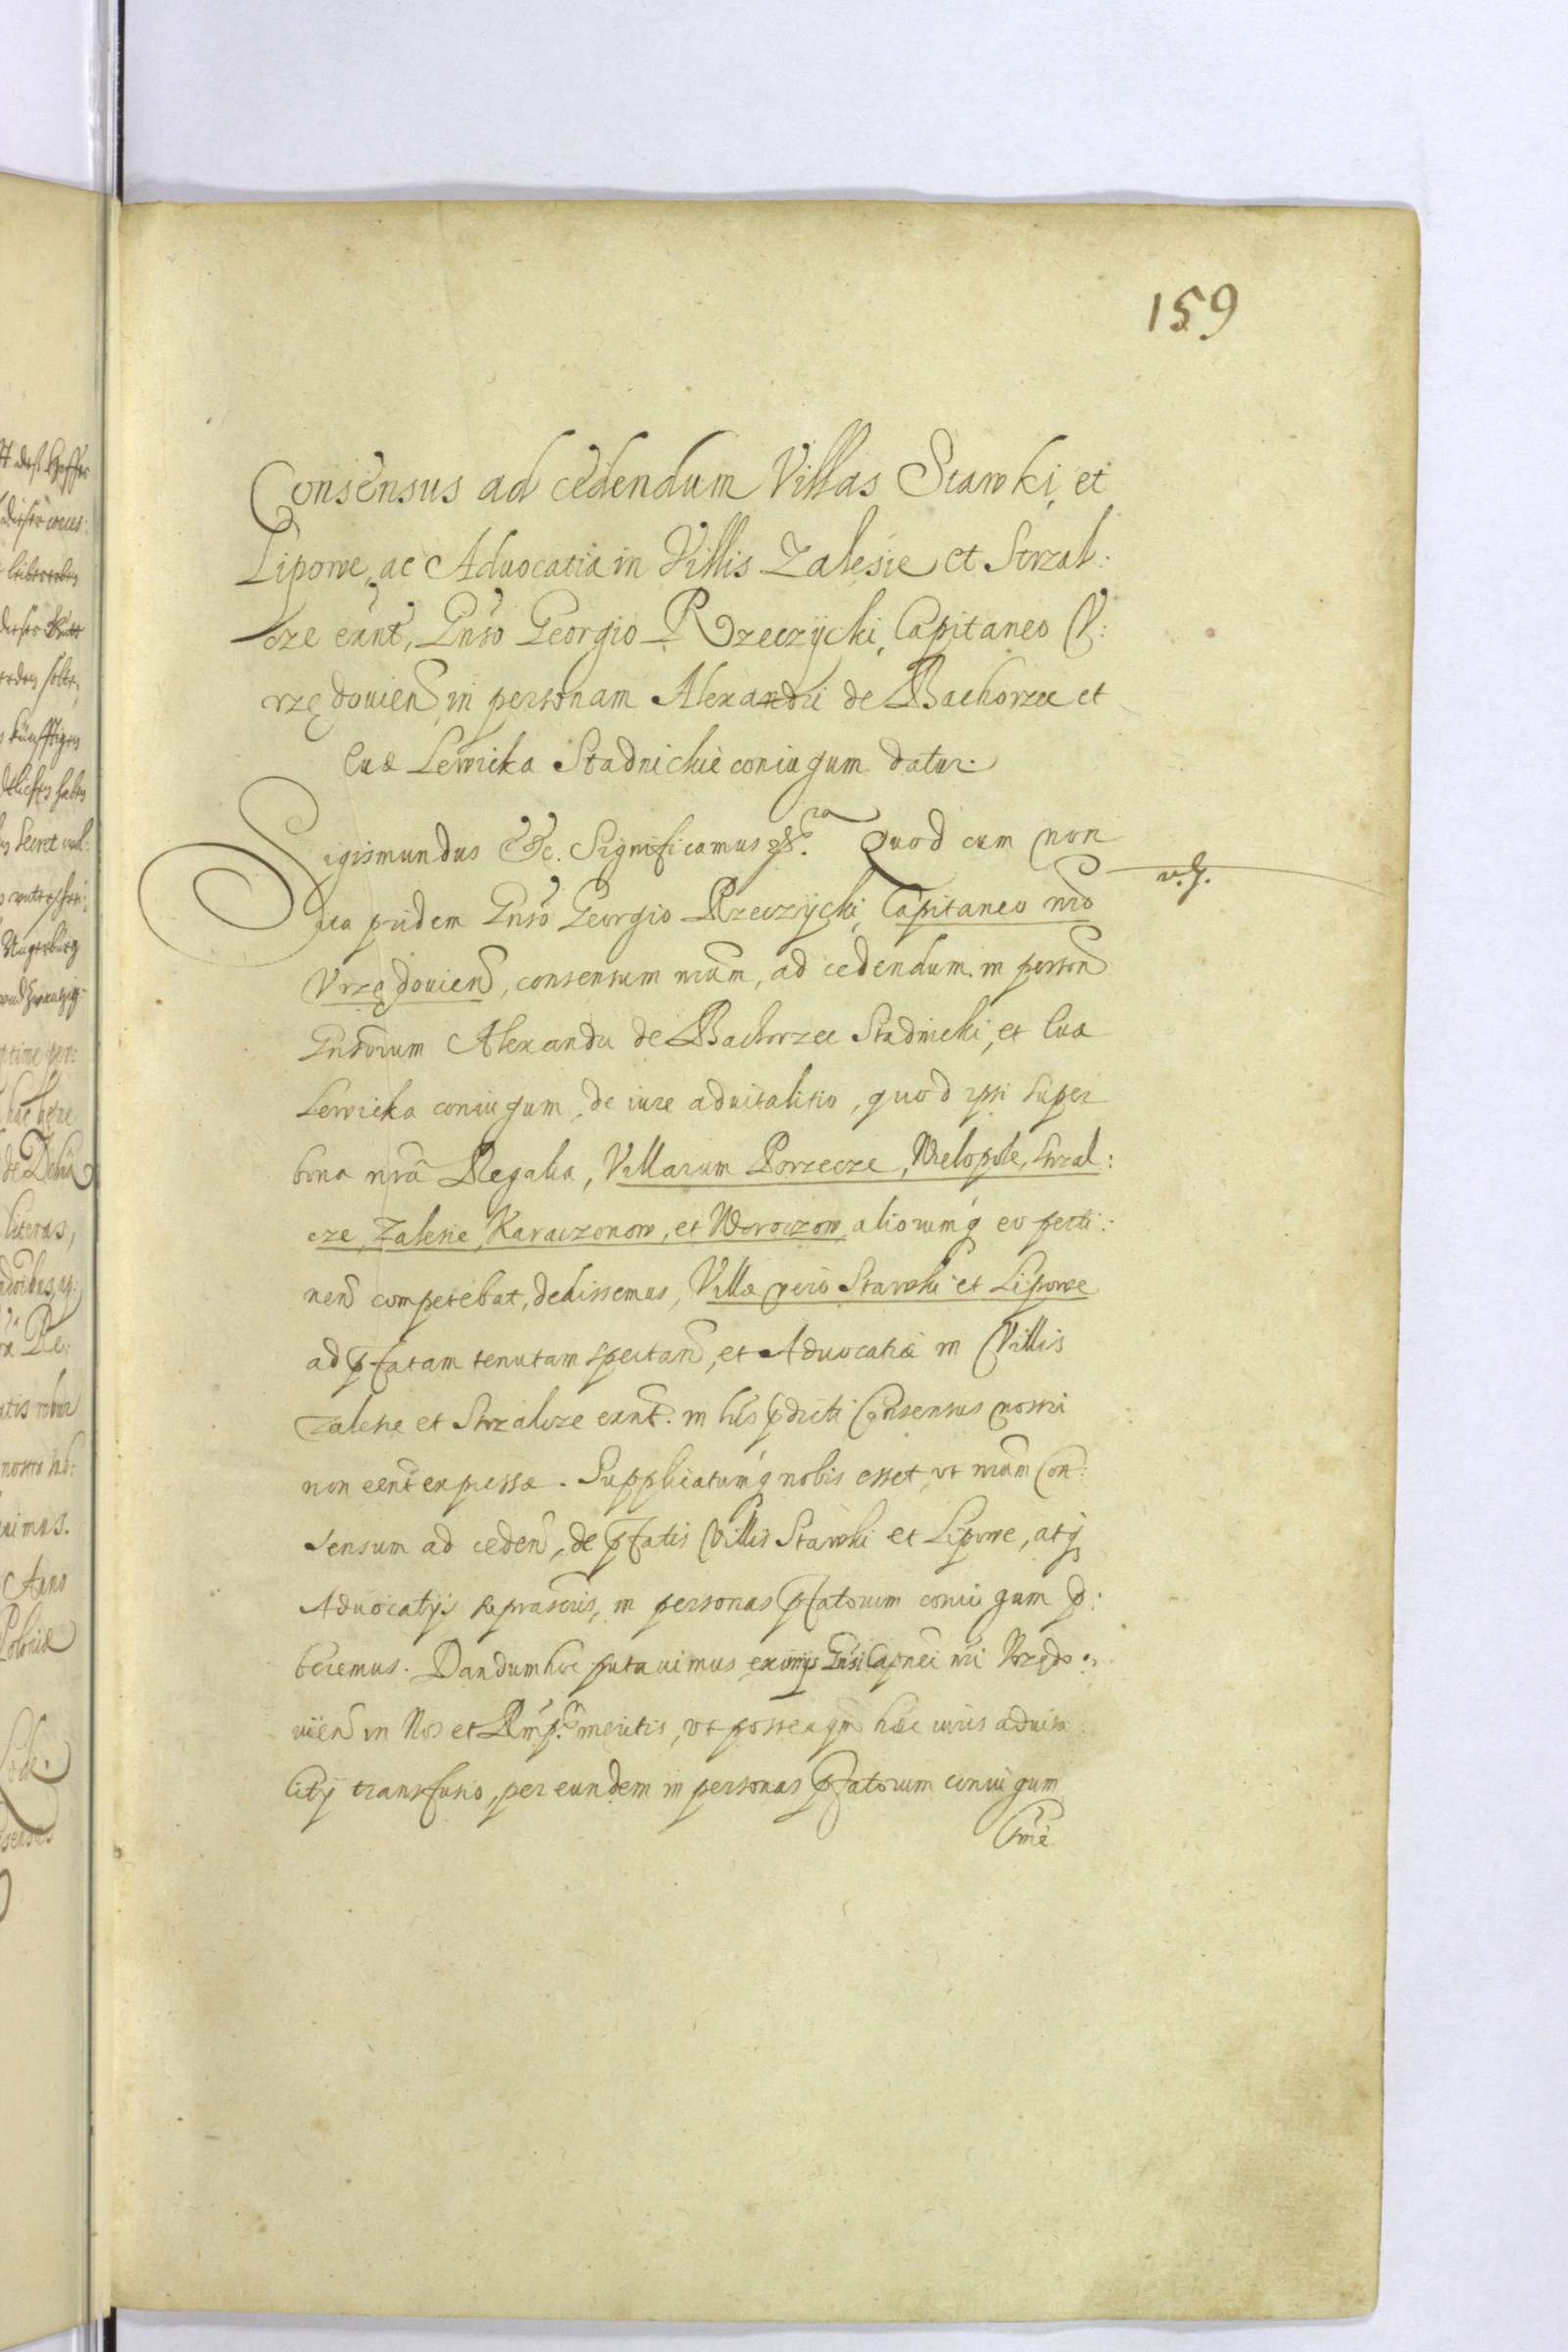 159
Consensus ad cedendum Villas Stawki et
Lipowe, ac Aduocatia in Villis Zalesie et Strzal:
cze exnt, Gnso Georgio Rzeczycki, Capitaneo V:
rzędouien in personam Alexandri de Bachorzec et
Euæ Lewicka Stadnickie coniugum datur.
Sigismundus &c. Significamus &ra Quod cum non
ita pridem Gnso Georgio Rzeczycki, Capitaneo nro
v.s.
Vrzędouien, consensum nrum, ad cedendum in person
Gnsorum Alexandri de Bachorzec Stadnicki, et Euæ
Lewicka coniugum, de iure aduitalitio, quod ipsi super
bona nra Regalia, Villarum Porzecze, Wielopole, Strzal:
cze, Zalesie, Karaczonow, et Woroczow, aliorumq eo perti:
nen competebat, dedissemus, Villæ vero Stawki et Lipowe
ad pfatam tenutam spectan, et Aduocatiæ in Villis
Zalesie et Strzalcze exnt. in lris pdicti Consensus nostri
non eent expessæ. Supplicatumq nobis esset, vt nrum Con:
sensum ad ceden, de pfatis Villis Stawki et Lipowe, atq
Aduocatijs suprascris, in personas pfatorum coniugum p:
beremus. Dandum hoc putauimus eximijs Gnsi Capnei nri Vrzędo:
uien in Nos et Rmp. meritis, vt posteaqm hæc iuris aduita
litij transfusio, per eundem in personas pfatorum coniugum